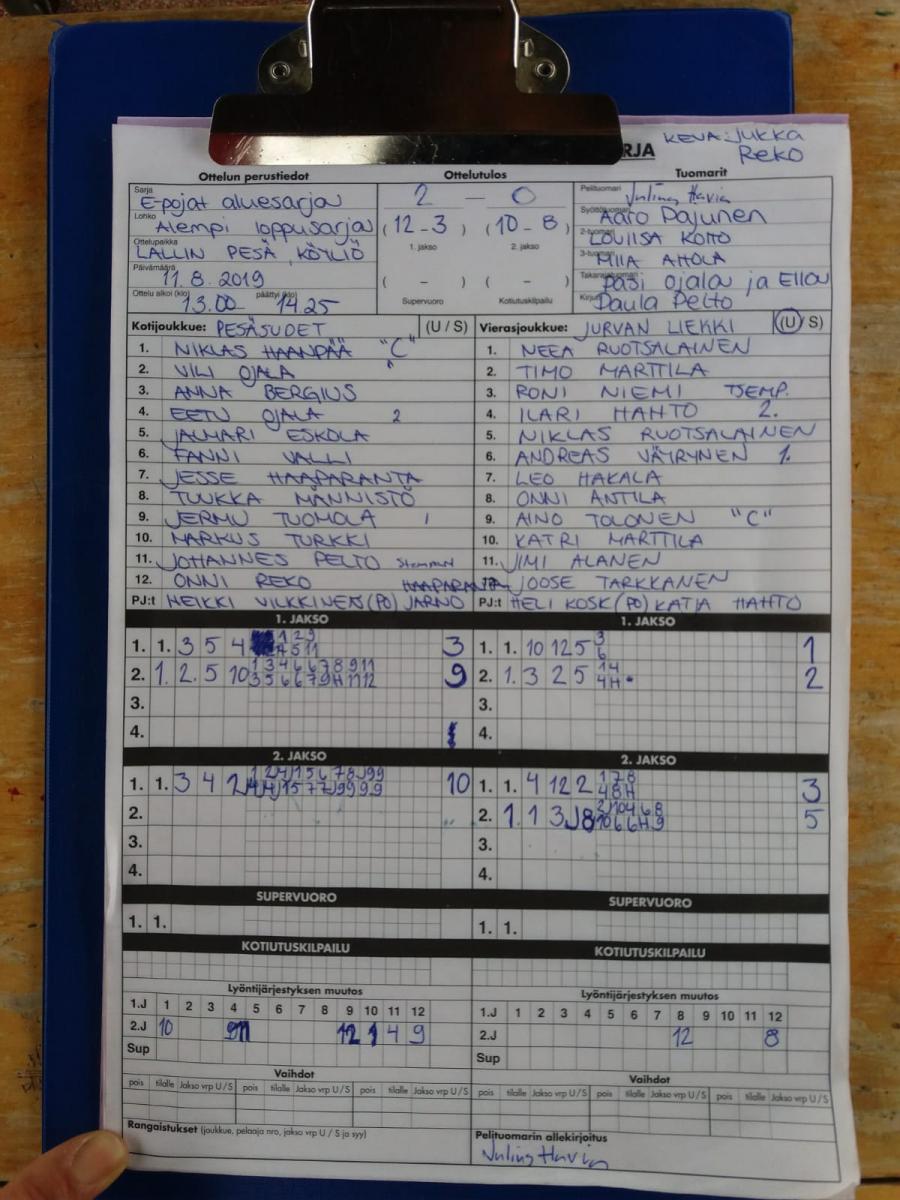 KEVA: JUKKA
REKO
RJA
Ottelun perustiedot Ottelutulos Tuomarit
Sarja E-pojat aluesarja 2 – 0 Pelituomari Julius Havia
Lohko Alempi loppusarja (12-3) (10-8) Syöttötuomari Aaro Pajunen
1. jakso 2. jakso
Ottelupaikka LALLIN PESÄ, KÖYLIÖ 2-tuomari
3-tuomari MIIA AHOLA
Päivämäärä 11.8.2019 ( – ) ( – ) Takarajatuomari pasi ojala ja
Ottelu alkoi (klo) 13.00 päättyi (klo) 14.25 Supervuoro Kotiutuskilpailu Paula Pelto
Kotijoukkue: PESÄSUDET (U / S) Vierasjoukkue: JURVAN LIEKKI (U / S)
1. NIKLAS HAANPÄÄ "C" 1. NEEA RUOTSALAINEN
2. VILI OJALA 2. TIMO MARTTILA
3. ANNA BERGIUS 3. RONI NIEMI TSEMP.
4. EETU OJALA 2 4. ILARI HAHTO 2.
5. JALMARI ESKOLA 5. NIKLAS RUOTSALAINEN
6. FANNI VALLI 6. ANDREAS VÄYRYNEN 1.
7. JESSE HAAPARANTA 7. LEO HAKALA
8. TUUKKA MÄNNISTÖ 8. ONNI ANTILA
9. JERMU TUOMOLA 1 9. AINO TOLONEN "C"
10. MARKUS TURKKI 10. KATRI MARTTILA
11. JOHANNES PELTO 11. JIMI ALANEN
12. ONNI REKO HAAPARANTA 12. JOOSE TARKKANEN
PJ:t HEIKKI VILKKINEN (PO) JARNO PJ:t HELI KOSK (PO) KATJA HAHTO
1. JAKSO 1. JAKSO
1. 1. 3 5 4 3 1. 1. 10 12 5 3 6 1
2. 1. 2. 5 10 9 2. 1. 3 2 5 2
3. 3.
4. 4.
2. JAKSO 2. JAKSO
1. 1. 3 4 2 10 1. 1. 4 12 2 3
2. 2. 1. 1 3 5
3. 3.
4. 4.
SUPERVUORO SUPERVUORO
1. 1. 1. 1.
KOTIUTUSKILPAILU KOTIUTUSKILPAILU
Lyöntijärjestyksen muutos Lyöntijärjestyksen muutos
1.J 1 2 3 4 5 6 7 8 9 10 11 12 1.J 1 2 3 4 5 6 7 8 9 10 11 12
2.J 10 12 1 4 9 2.J 12 8
Sup Sup
Vaihdot Vaihdot
pois tilalle Jakso vrp U / S pois tilalle Jakso vrp U / S pois tilalle Jakso vrp U / S pois tilalle Jakso vrp U / S pois tilalle Jakso vrp U / S pois tilalle Jakso vrp U / S
Rangaistukset (joukkue, pelaaja nro, jakso vrp U / S ja syy) Pelituomarin allekirjoitus
Julius Havia